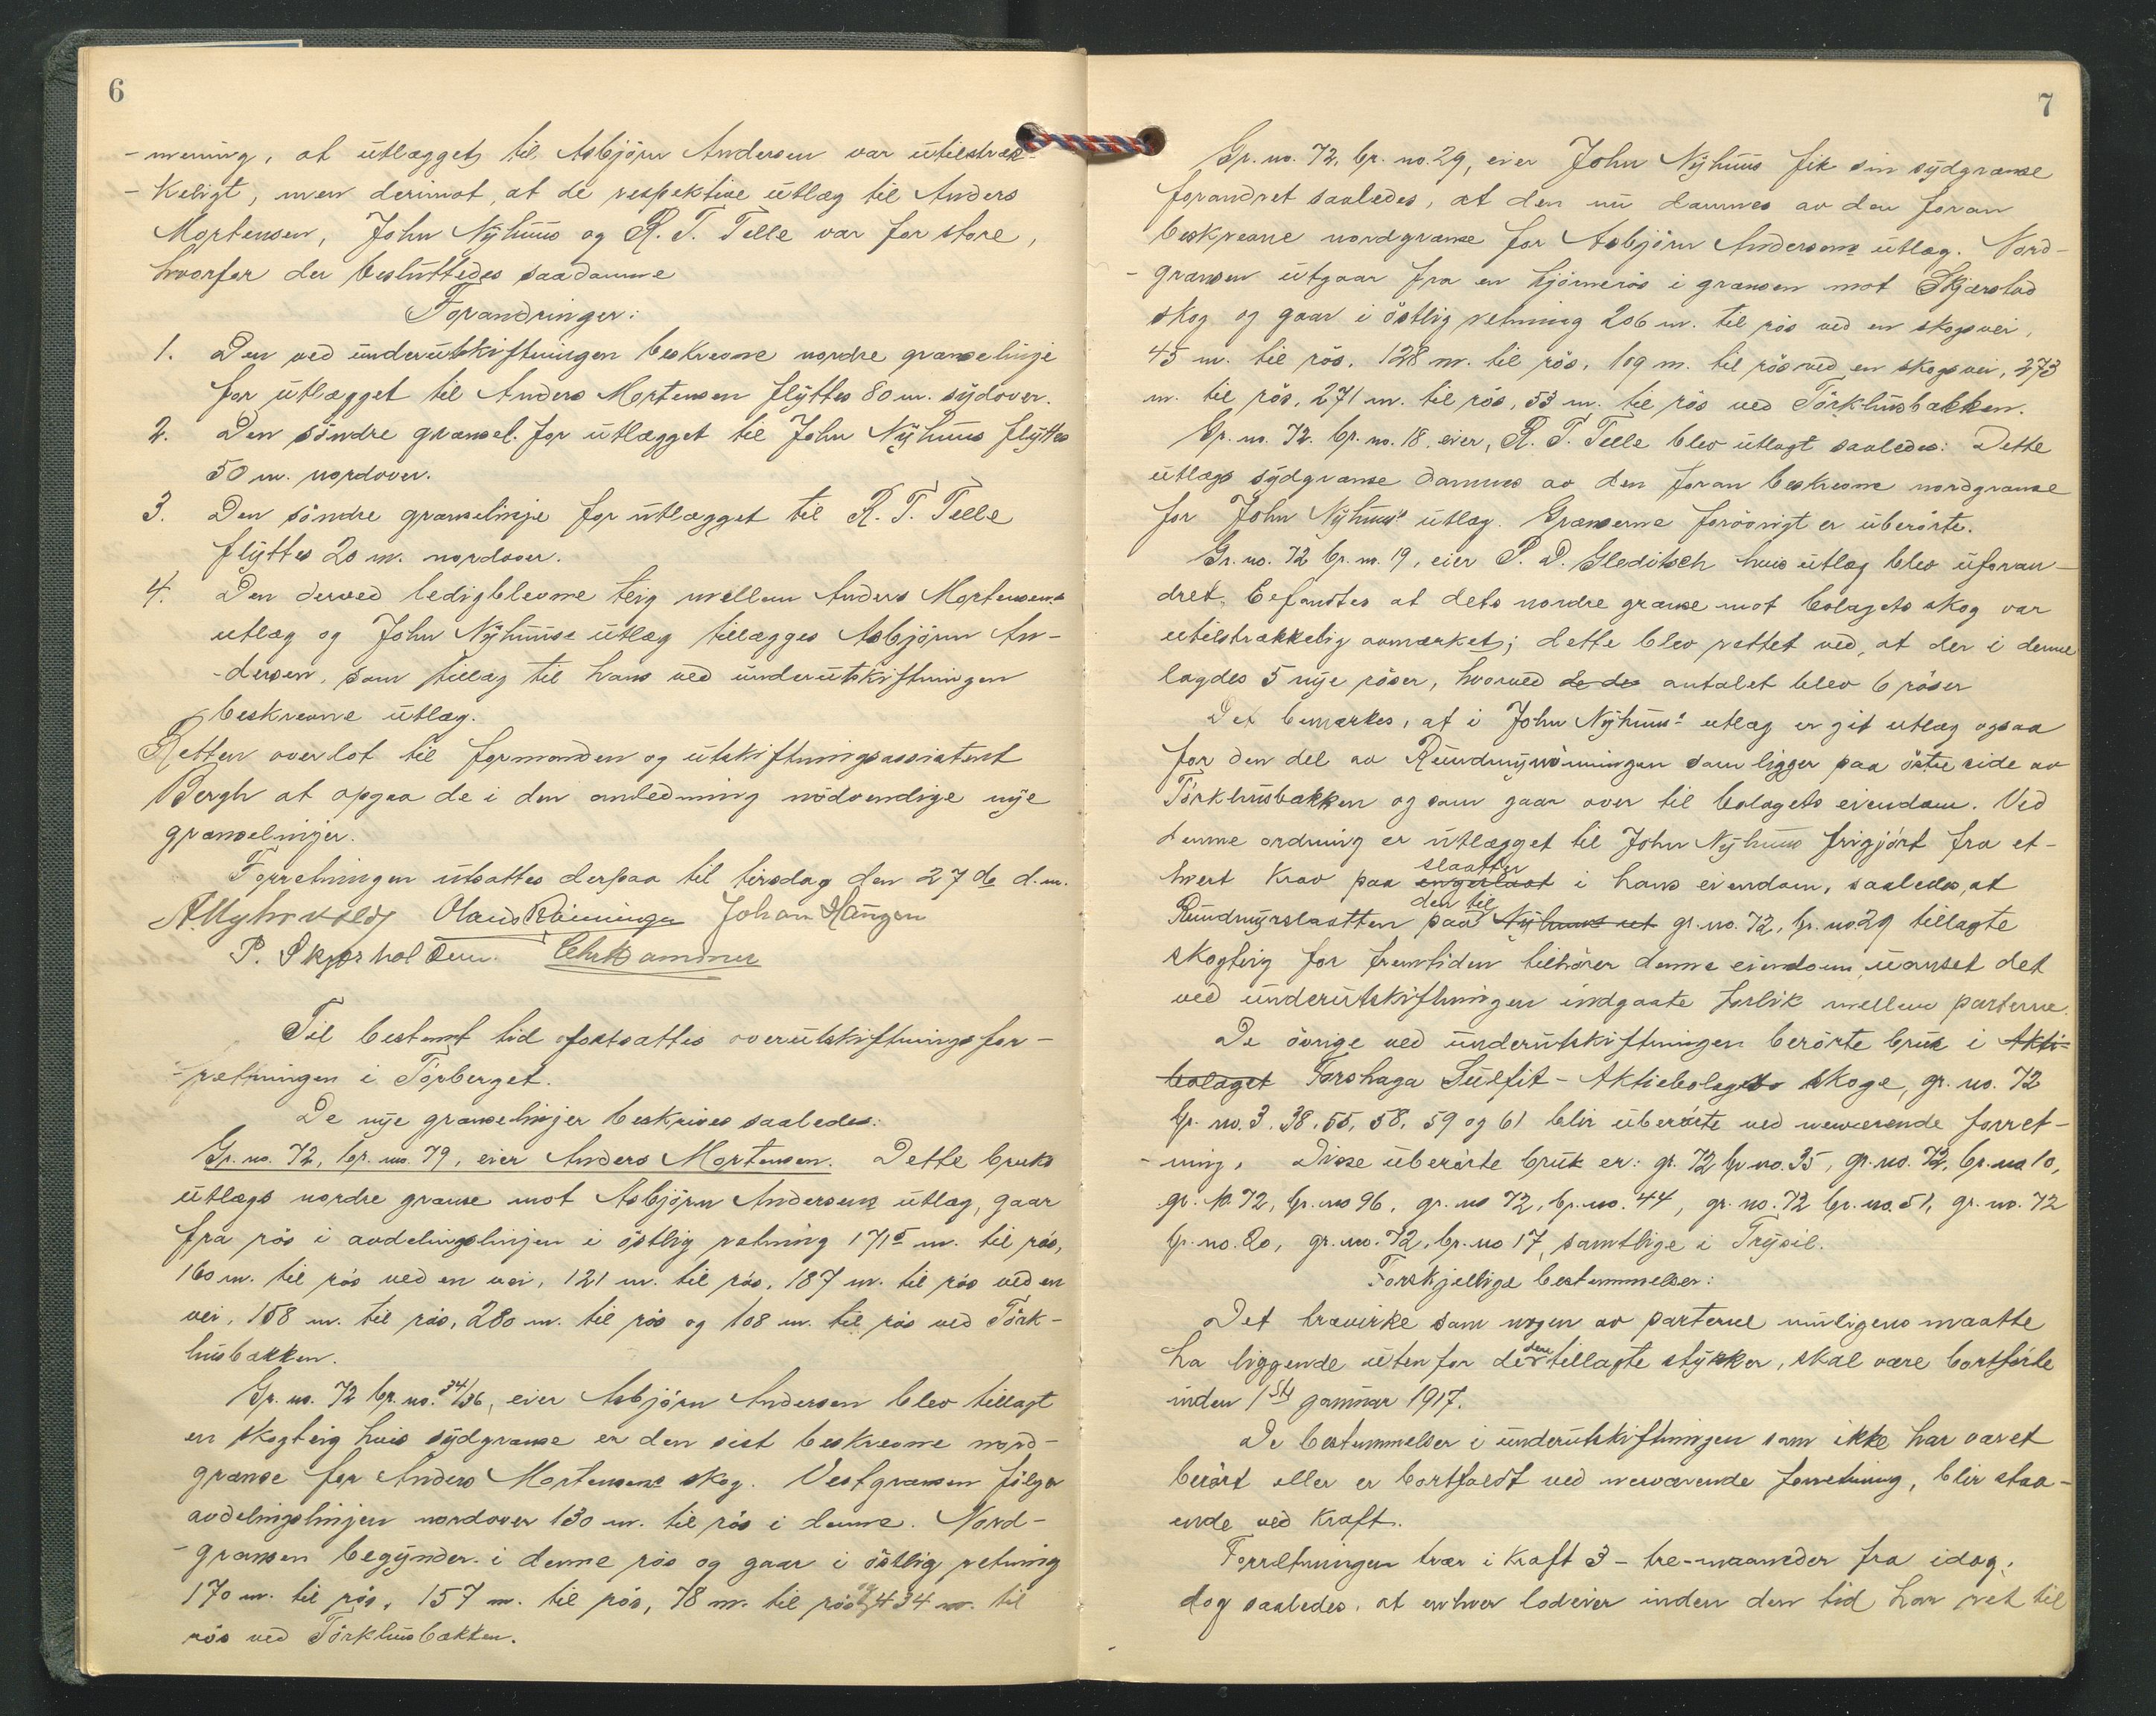 6
-mening, at utlægget til Asbjörn Andersen var utilstræk-
-keligt, men derimot, at de respektive utlæg til Anders
Mortensen, John Nyhuus og R. T. Telle var for store,
hvorfor der besluttedes saadanne
Forandringer:
1. Den ved underutskiftningen beskrevne nordre grænselinje
for utlægget til Anders Mortensen flyttes 80 m. sydover.
2. Den söndre grænsel. for utlægget til John Nyhuus flyttes
50 m. nordover.
3. Den söndre grænselinje for utlægget til R. T. Telle
flyttes 20 m. nordover.
4. Den derved ledigblevne teig mellem Anders Mortensens
utlæg og John Nyhuuse utlæg tillægges Asbjörn An-
-dersen, som tillæg til hans ved underutskiftningen
beskrevne utlæg.
Retten overlot til formanden og utskiftningsassistent
Bergh at opgaa de i den anledning nödvendige nye
grænselinjer.
Forretningen utsattes derpaa til tirsdag den 27 de d.m.
A. Myhrvold Olaus Rönninge Johan Haugen
P. Skjærholden. Chr Kammer
Til bestemt tid fortsattes overutskiftningsfor-
-retningen i Törberget.
De nye grænselinjer beskrives saaledes:
Gr. no. 72, br. no. 79, eier Anders Mortensen. Dette bruks
utlægs nordre grænse mot Asbjörn Andersens utlæg, gaar
fra rös i avdelingslinjen i östlig retning 171⁵ m. til rös,
160 m. til rös ved en vei, 121 m. til rös, 187 m. til rös ved en
vei, 158 m. til rös, 280 m. til rös og 108 m. til rös ved Törk-
husbækken.
Gr. no. 72 br. no. 34/36, eier Asbjörn Andersen blev tillagt
en skogteig hvis sydgrænse er den sist beskrevne nord-
grænse for Anders Mortensens skog. Vestgrænsen fölger
avdelingslinjen nordover 130 m. til rös i denne. Nord-
-grænsen begynder i denne rös og gaar i östlig retning
170 m. til rös, 157 m. til rös, 78 m. til rös og 434 m. til
rös ved Törkhusbækken.
7
Gr. no. 72, br. no. 29, eier John Nyhuus fik sin sydgrænse
forandret saaledes, at den nu dannes av den foran
beskrevne nordgrænse for Asbjörn Andersens utlæg. Nord-
-grænsen utgaar fra en hjörnerös i grænsen mot Skjærstad
skog og gaar i östlig retning 206 m. til rös ved en skogsvei,
45 m. til rös, 128 m. til rös, 109 m. til rös ved en skogsvei, 273
m. til rös, 271 m. til rös, 53 m. til rös ved Törkhusbækken.
Gr. no. 72. br. no. 18. eier, R. T. Telle blev utlagt saaledes: Dette
utlægs sydgrænse dannes av den foran beskrevne nordgrænse
for John Nyhuus' utlæg. Grænserne forövrigt er uberörte.
Gr. no. 72 br. no. 19, eier P. D. Gleditsch hvis utlæg blev uforan-
dret. Befandtes at dets nordre grænse mot bolagets skog var
utilstrækkelig avmerket; dette blev rettet ved, at der i denne
lagdes 5 nye röser, hvorved de des antalet blev 6 röser
Det bemerkes, at i John Nyhuus' utlæg er git utlæg ogsaa
for den del av Rundmyrvönningen som ligger paa östre side av
Törkhusbækken og som gaar over til bolagets eiendom. Ved
denne ordning er utlægget til John Nyhuus frigjört fra et-
slaatten
hvert krav paa engerlaat i hans eiendom, saaledes, at
den til
Rundmyrslaatten paa Nyhuus ut gr. no. 72, br. no 29 tillagte
skogteig for fremtiden tilhörer denne eiendom, uanset det
ved underutskiftningen indgaate forlik mellem parterne.
De övrige ved underutskiftningen berörte bruk i Akti-
bolaget Forshaga Sulfit-Aktiebolags skoge, gr. no. 72
br. no. 3, 38, 55, 58, 59 og 61 blir uberörte ved nærværende forret-
-ning. Disse uberörte bruk er: gr. 72 br no. 35, gr. no. 72, br. no 10,
gr. no 72, br. no 96, gr. no 72, br. no. 44, gr. no. 72 br. no. 51, gr. no. 72
br. no. 20, gr. no. 72, br. no 17, samtlige i Trysil.
Forskjellige bestemmelser:
Det trævirke som nogen av parterne muligens maatte
dem
ha liggende uten for de tillagte stykker, skal være bortförte
inden 1ste januar 1917.
De bestemmelser i underutskiftningen som ikke har været
berört eller er bortfaldt ved nærværende forretning, blir staa-
ende ved kraft.
Forretningen trær i kraft 3-tre-maaneder fra idag,
dog saaledes, at enhver lodeier inden den tid har ret til